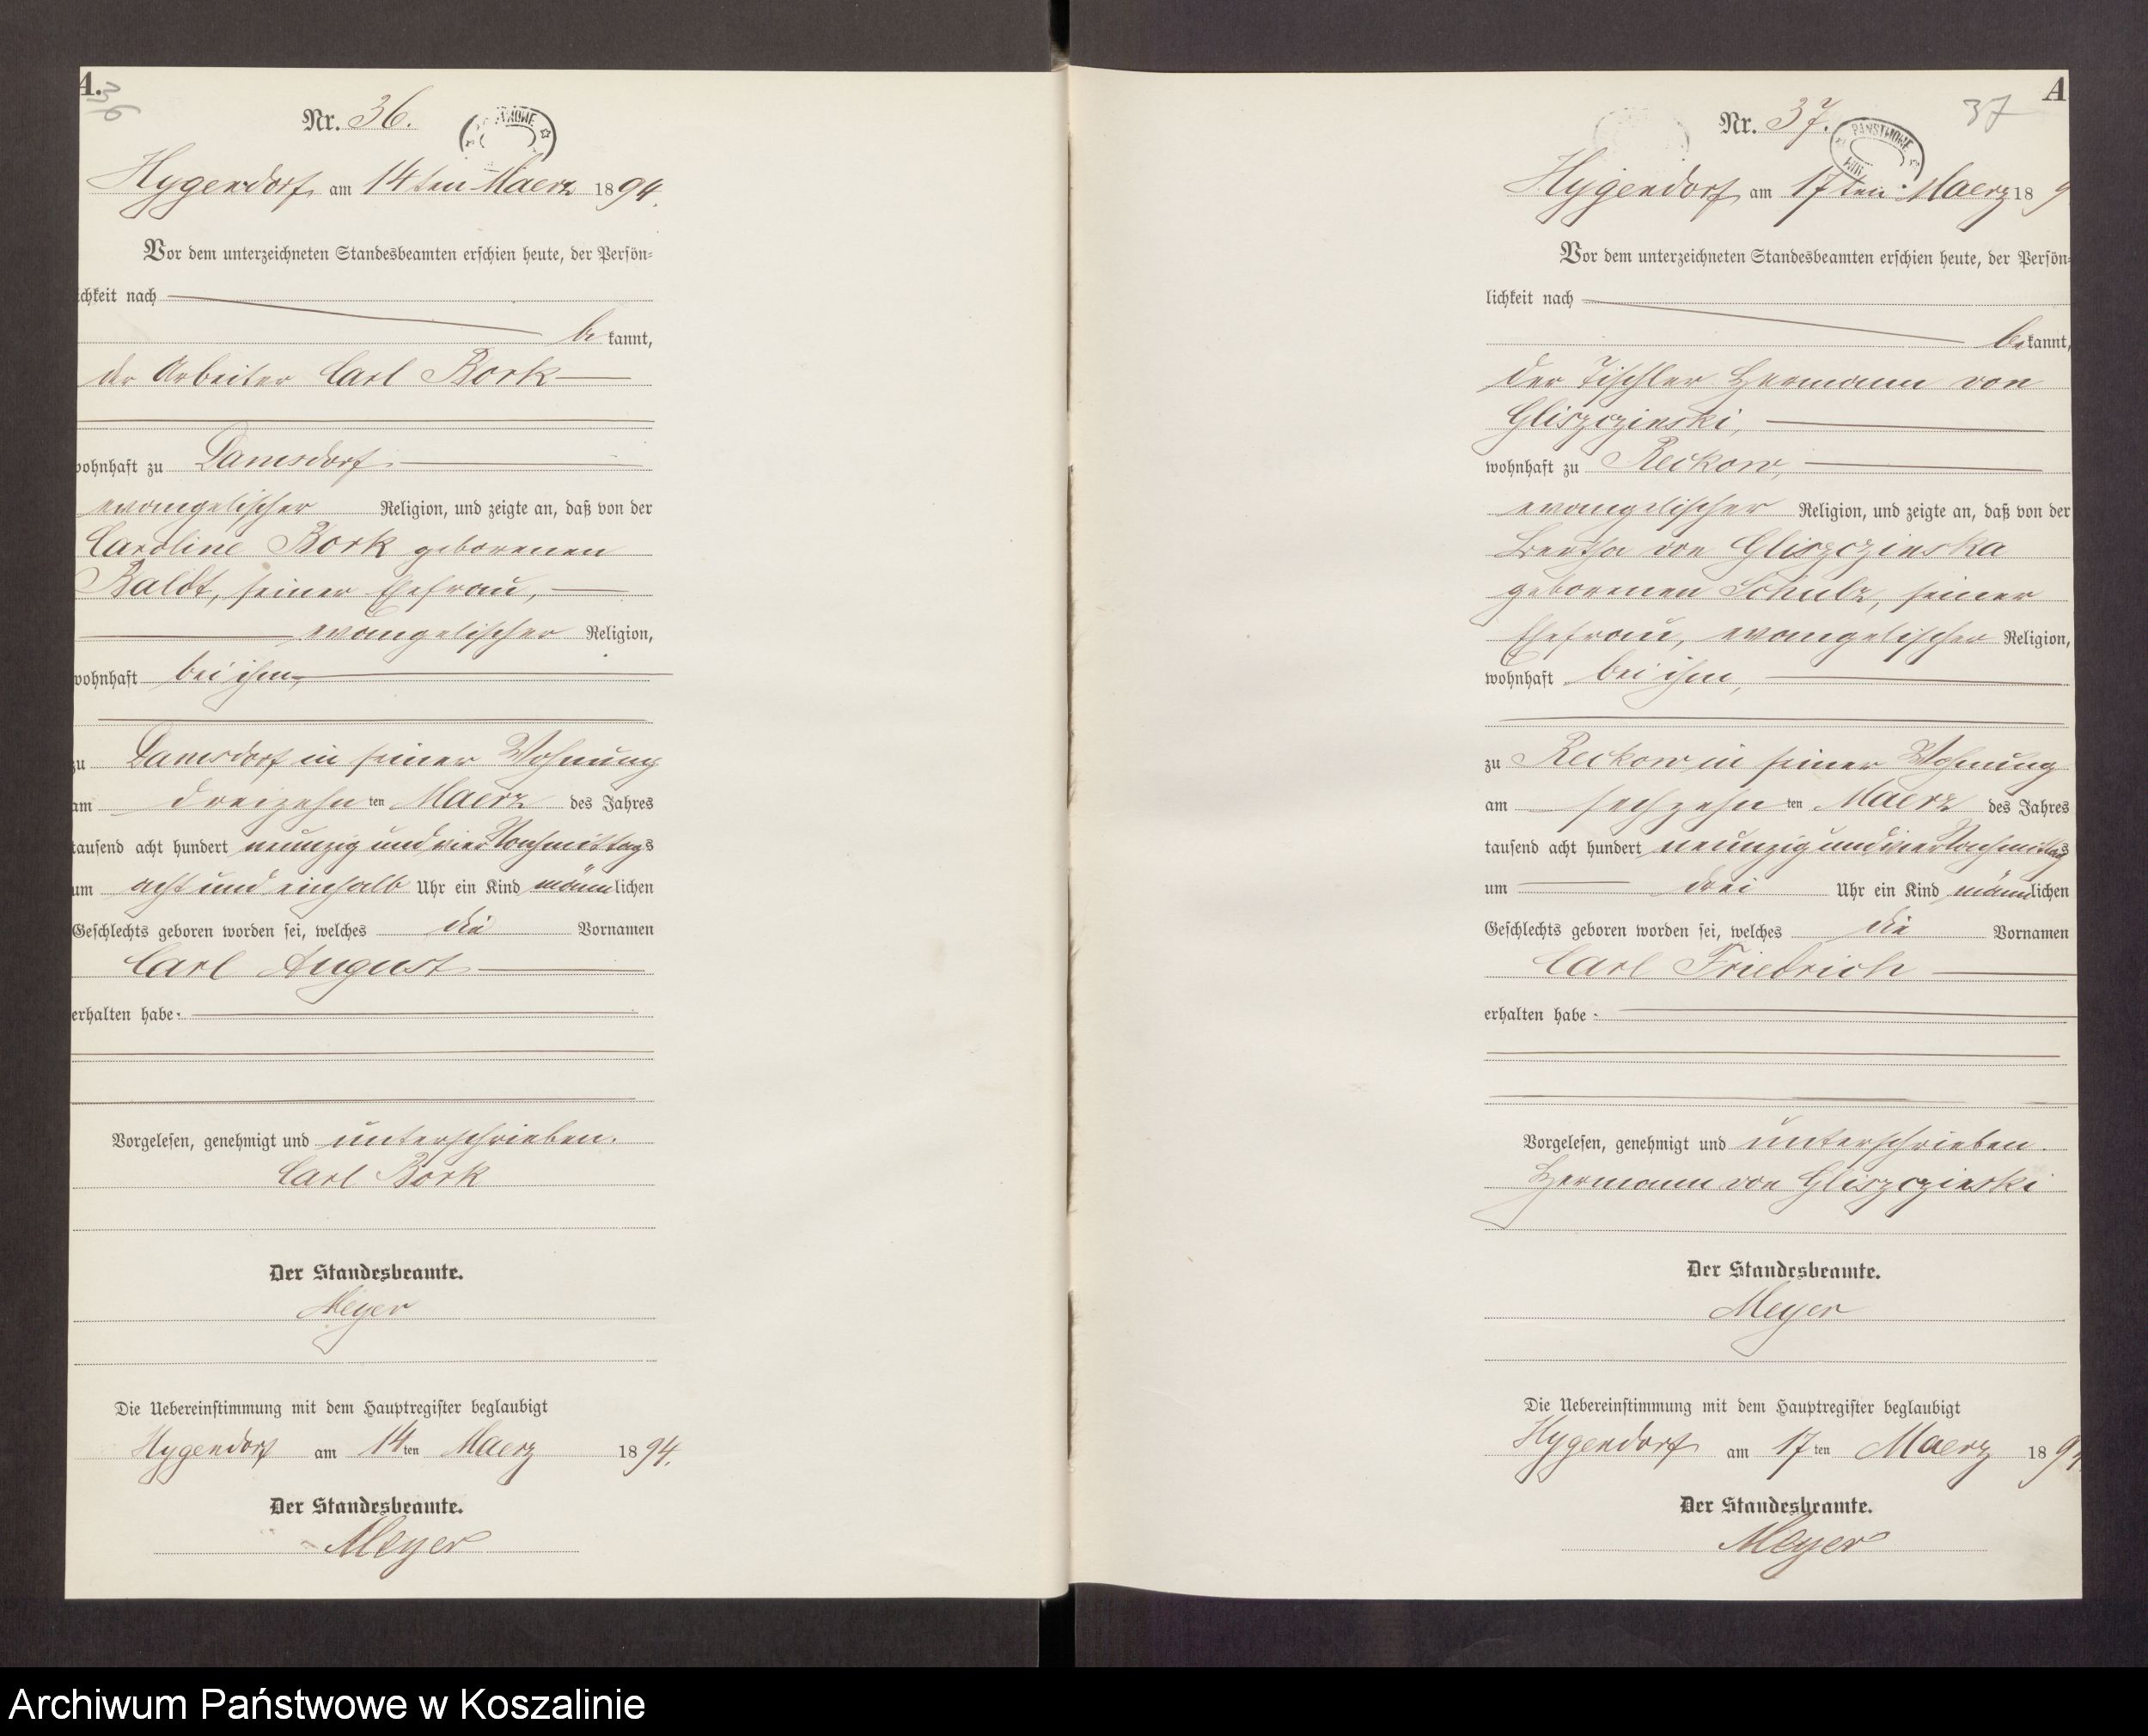 A.
36
Nr. 36.
Hygendorf am 14ten Maerz 1894.
Vor dem unterzeichneten Standesbeamten erschien heute, der Persön-
chkeit nach
be kannt,
der Arbeiter Carl Bork
wohnhaft zu Damsdorf
evangelischer Religion, und zeigte an, daß von der
Caroline Bork geborenen
Baldt, seiner Ehefrau,
evangelischer Religion,
wohnhaft bei ihm,
zu Damsdorf in seiner Wohnung
am dreizehn ten Maerz des Jahres
tausend acht hundert neunzig und vier Nachmittags
um acht und einhalb Uhr ein Kind männlichen
Geschlechts geboren worden sei, welches die Vornamen
Carl August
erhalten habe.
Vorgelesen, genehmigt und unterschrieben.
Carl Bork
Der Standesbeamte.
Meyer
Die Uebereinstimmung mit dem Hauptregister beglaubigt
Hygendorf am 14ten Maerz 1894.
Der Standesbeamte.
Meyer
A
37
Nr. 37.
PAŃSTWOWE
Hygendorf am 17ten Maerz 189
Vor dem unterzeichneten Standesbeamten erschien heute, der Persön-
lichkeit nach
be kannt,
der Tischler Hermann von
Gliszczinski,
wohnhaft zu Reckow,
evangelischer Religion, und zeigte an, daß von der
Bertha von Gliszczinska
geborenen Schulz, seiner
Ehefrau, evangelischer Religion,
wohnhaft bei ihm,
zu Reckow in seiner Wohnung
am sechzehn ten Maerz des Jahres
tausend acht hundert neunzig und vier Nachmittags
um drei Uhr ein Kind männlichen
Geschlechts geboren worden sei, welches die Vornamen
Carl Friedrich
erhalten habe.
Vorgelesen, genehmigt und unterschrieben.
Hermann von Gliszczinski
Der Standesbeamte.
Meyer
Die Uebereinstimmung mit dem Hauptregister beglaubigt
Hygendorf am 17ten Maerz 189
Der Standesbeamte.
Meyer
Archiwum Państwowe w Koszalinie